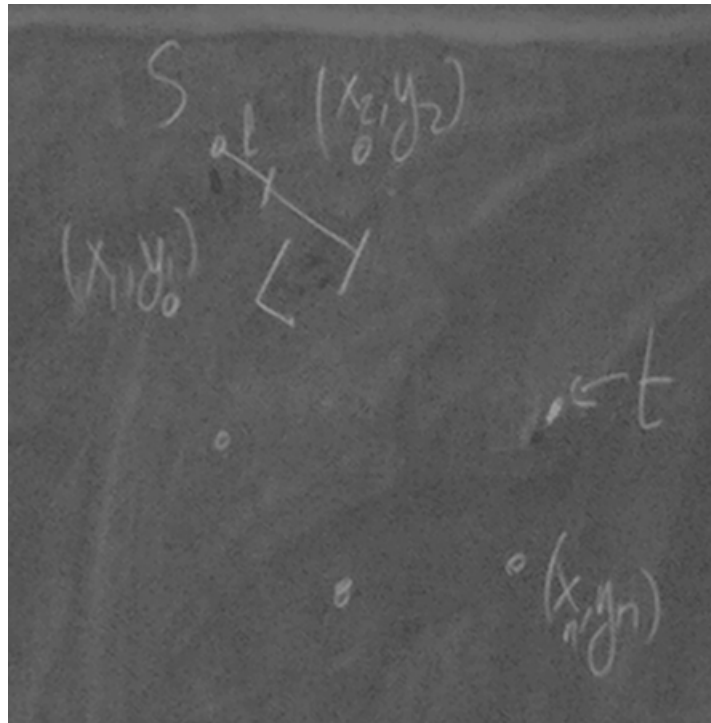 S
(x₂, y₂)
l
(x₁, y₁)
t
(xₙ, yₙ)